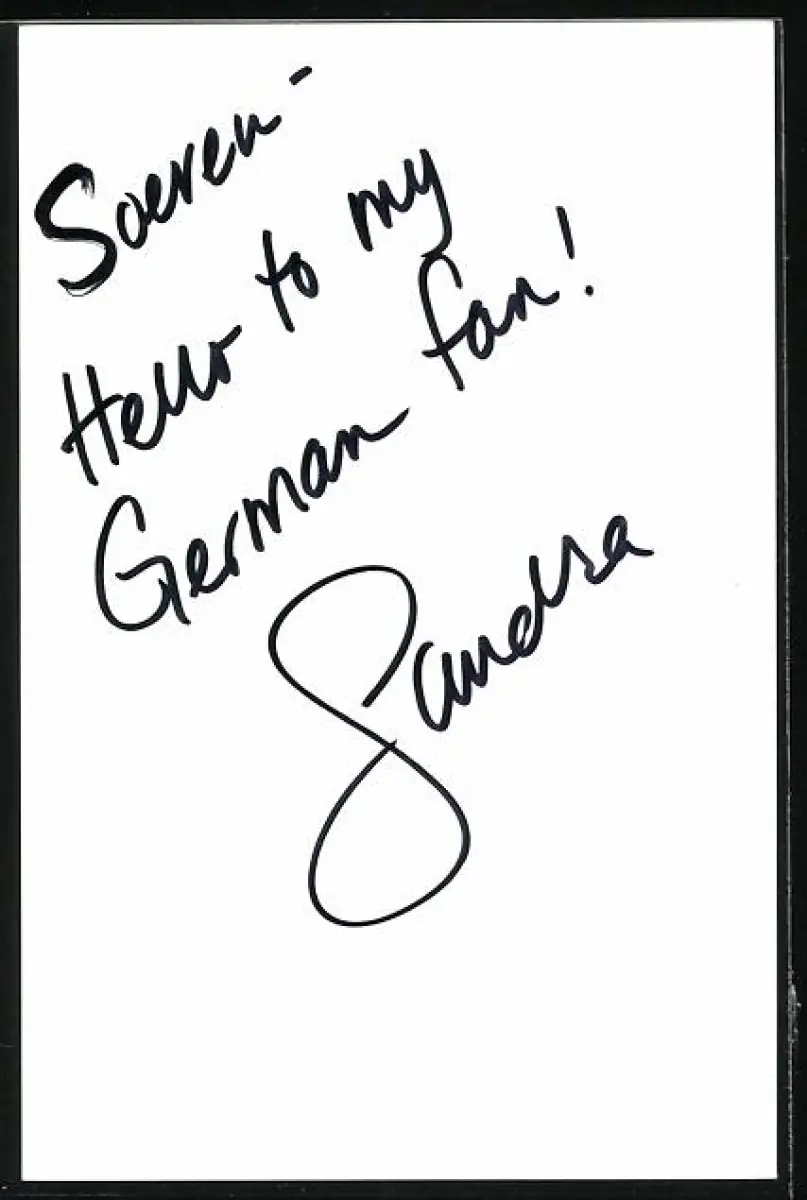 Soeren -
Hello to my
German fan!
Sandra